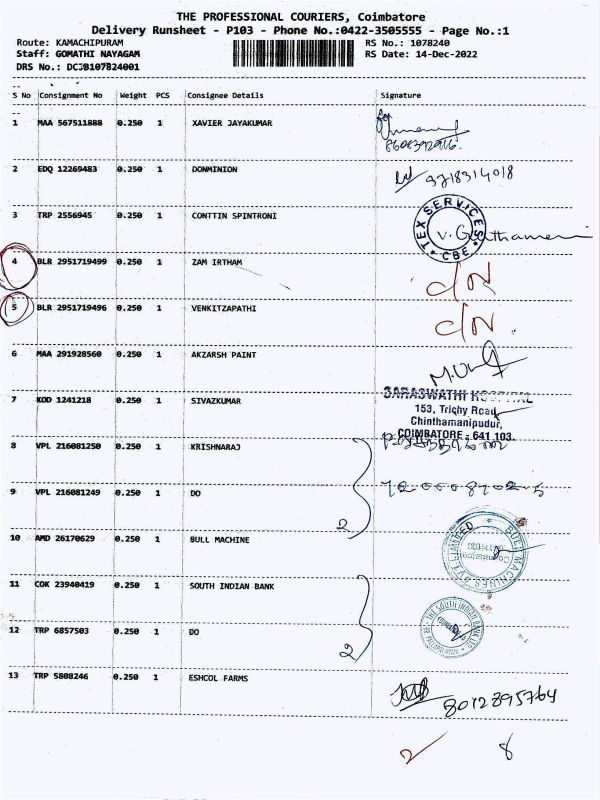 THE PROFESSIONAL COURIERS, Coimbatore
Delivery Runsheet - P103 - Phone No.:0422-3505555 - Page No.:1
Route: KAMACHIPURAM RS No.: 1078240
Staff: GOMATHI NAYAGAM RS Date: 14-Dec-2022
DRS No.: DCJB107824001
S No Consignment No Weight PCS Consignee Details Signature
1 MAA 567511888 0.250 1 XAVIER JAYAKUMAR
2 EDQ 12269483 0.250 1 DONMINION 9718314018
3 TRP 2556945 0.250 1 CONTTIN SPINTRONI
TEX SERVICES CBE
4 BLR 2951719499 0.250 1 ZAM IRTHAM
5 BLR 2951719496 0.250 1 VENKITZAPATHI
6 MAA 291928560 0.250 1 AKZARSH PAINT
7 KOD 1241218 0.250 1 SIVAZKUMAR
SARASWATHI HOSPITAL
153, Trichy Road,
Chinthamanipudur,
COIMBATORE - 641 103.
8 VPL 216081250 0.250 1 KRISHNARAJ
9 VPL 216081249 0.250 1 DO
2
10 AMD 26170629 0.250 1 BULL MACHINE
BULL MACHINES PVT LIMITED
11 COK 23940419 0.250 1 SOUTH INDIAN BANK
THE SOUTH INDIAN BANK LTD
12 TRP 6857503 0.250 1 DO
2
13 TRP 5808246 0.250 1 ESHCOL FARMS 8012895764
2 8